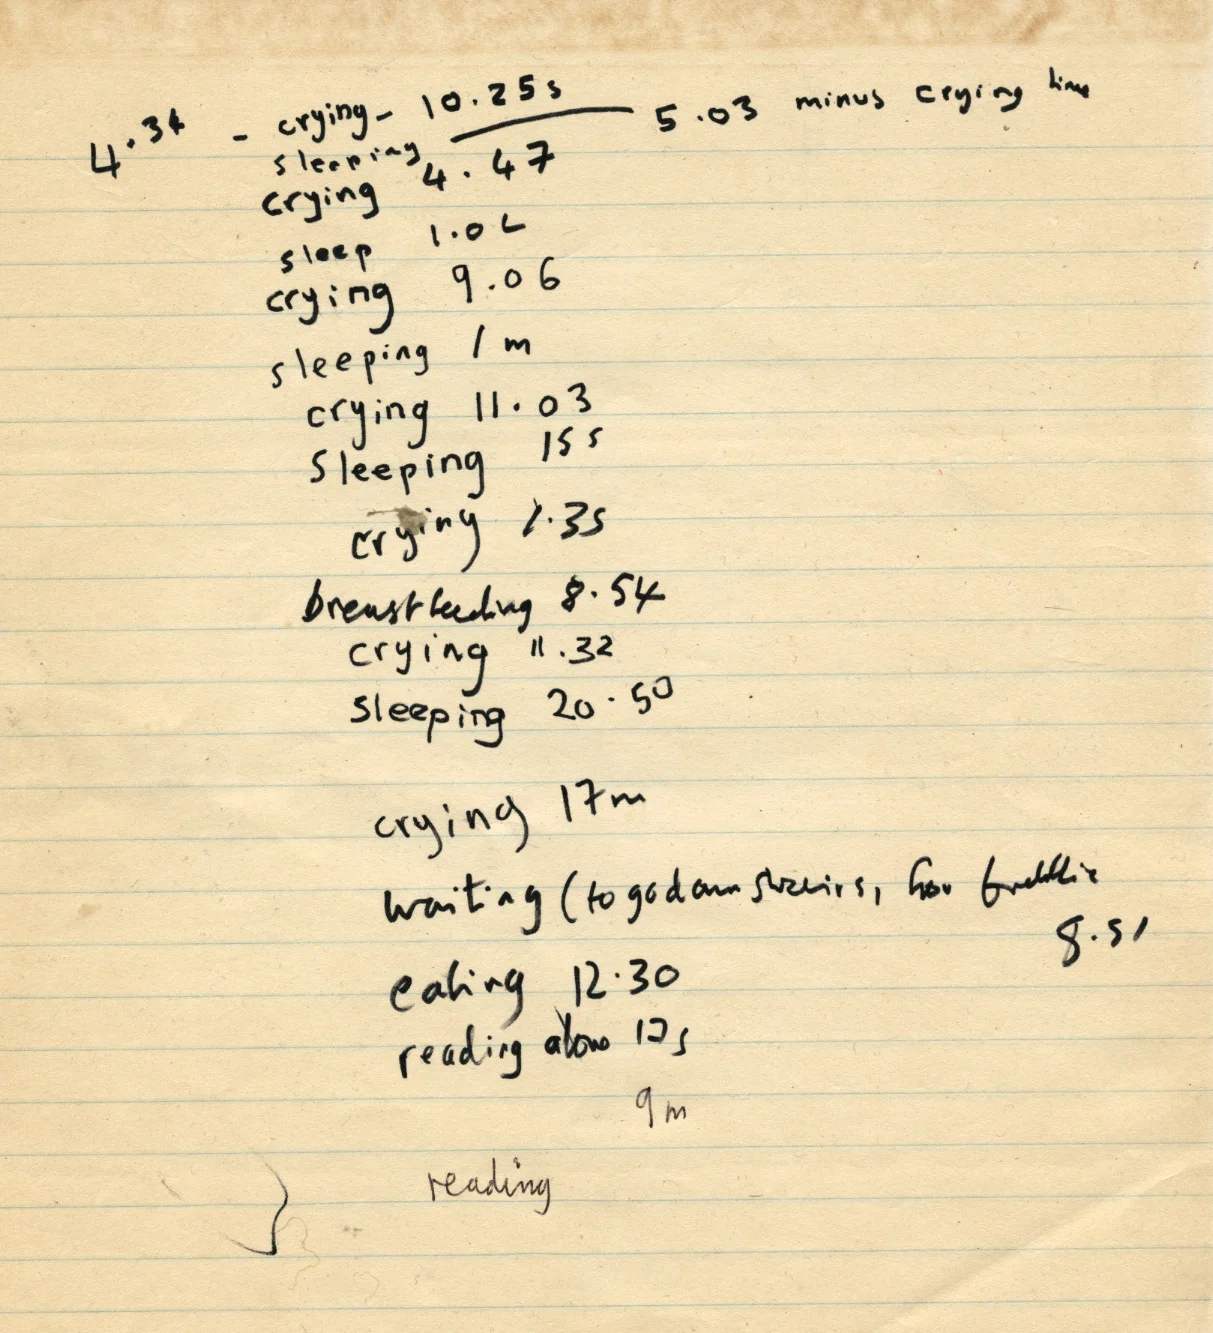 4.34 - crying - 10.25s 5.03 minus crying time
sleeping 4.47
crying
sleep 1.02
crying 9.06
sleeping 1m
crying 11.03
Sleeping 15s
crying 1.35
breastfeeding 8.54
crying 11.32
sleeping 20.50
crying 17m
waiting (to go down stairs, for
8.51
eating 12.30
reading alone
9m
reading